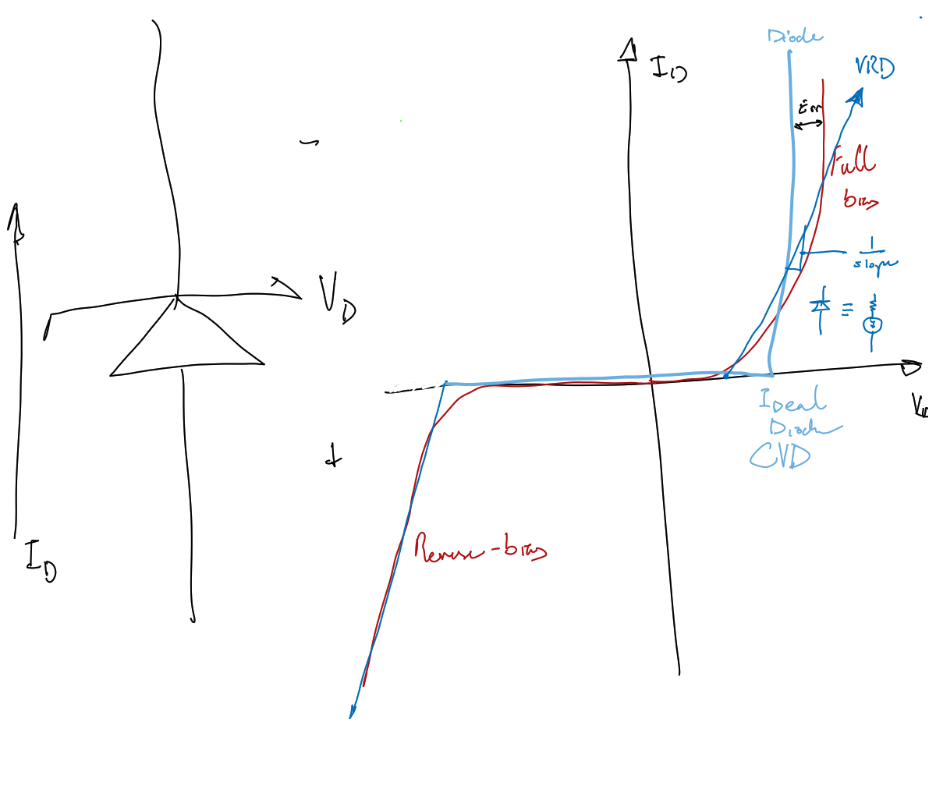 I_D
V_D
I_D
Diode
VRD
Err
Full
bias
1
slope
≡
V_D
Ideal
Diode
CVD
Reverse-bias